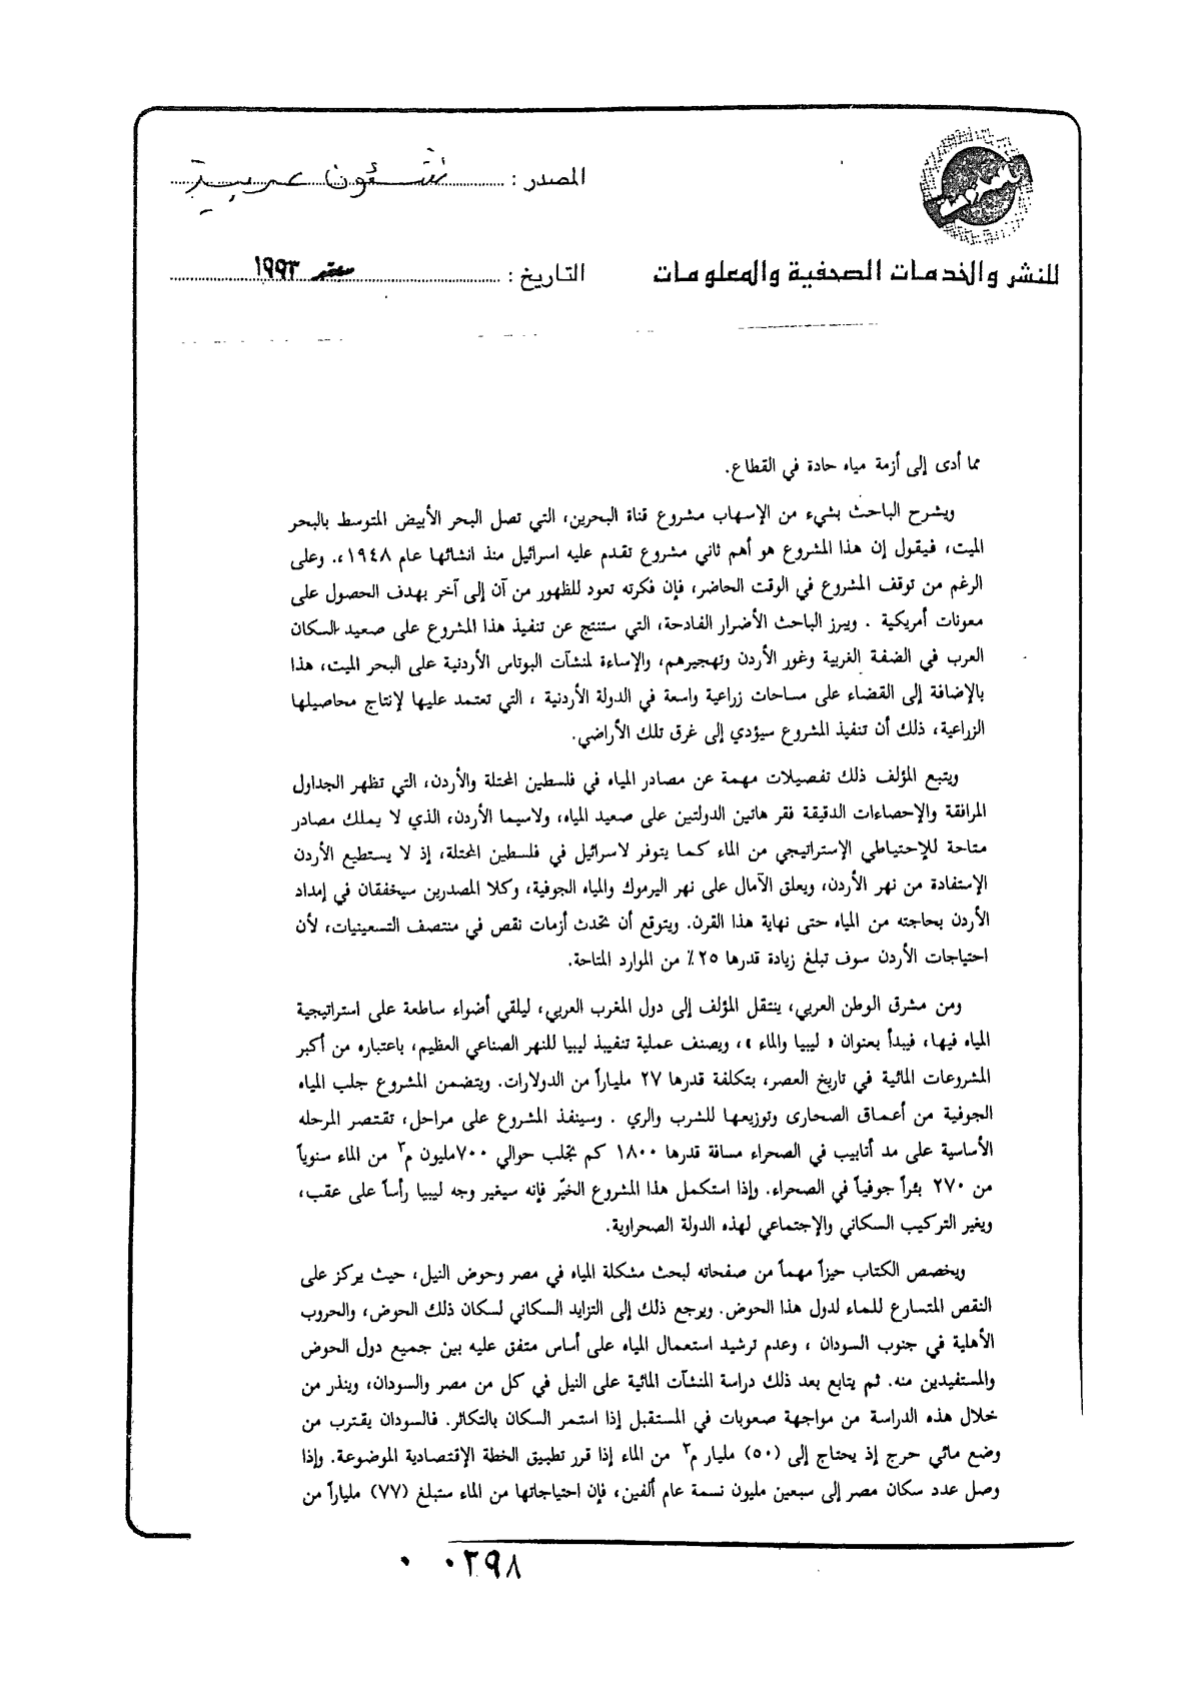 المصدر : شئون عربية
للنشر والخدمات الصحفية والمعلومات
التاريخ : سبتمبر ١٩٩٣
مما أدى إلى أزمة مياه حادة في القطاع.
ويشرح الباحث بشيء من الإسهاب مشروع قناة البحرين، التي تصل البحر الأبيض المتوسط بالبحر
الميت، فيقول إن هذا المشروع هو أهم ثاني مشروع تقدم عليه اسرائيل منذ انشائها عام ١٩٤٨». وعلى
الرغم من توقف المشروع في الوقت الحاضر، فإن فكرته تعود للظهور من آن إلى آخر بهدف الحصول على
معونات أمريكية . ويبرز الباحث الأضرار الفادحة، التي ستنتج عن تنفيذ هذا المشروع على صعيد السكان
العرب في الضفة الغربية وغور الأردن وتهجيرهم، والإساءة لمنشآت البوتاس الأردنية على البحر الميت، هذا
بالإضافة إلى القضاء على مساحات زراعية واسعة في الدولة الأردنية ، التي تعتمد عليها لإنتاج محاصيلها
الزراعية، ذلك أن تنفيذ المشروع سيؤدي إلى غرق تلك الأراضي.
ويتبع المؤلف ذلك تفصيلات مهمة عن مصادر المياه في فلسطين المحتلة والأردن، التي تظهر الجداول
المرافقة والإحصاءات الدقيقة فقر هاتين الدولتين على صعيد المياه، ولاسيما الأردن، الذي لا يملك مصادر
متاحة للإحتياطي الإستراتيجي من الماء كما يتوفر لاسرائيل في فلسطين المحتلة، إذ لا يستطيع الأردن
الإستفادة من نهر الأردن، ويعلق الآمال على نهر اليرموك والمياه الجوفية، وكلا المصدرين سيخفقان في إمداد
الأردن بحاجته من المياه حتى نهاية هذا القرن. ويتوقع أن تحدث أزمات نقص في منتصف التسعينيات، لأن
احتياجات الأردن سوف تبلغ زيادة قدرها ٢٥٪ من الموارد المتاحة.
ومن مشرق الوطن العربي، ينتقل المؤلف إلى دول المغرب العربي، ليلقي أضواء ساطعة على استراتيجية
المياه فيها، فيبدأ بعنوان « ليبيا والماء »، ويصنف عملية تنفيبذ ليبيا للنهر الصناعي العظيم، باعتباره من أكبر
المشروعات المائية في تاريخ العصر، بتكلفة قدرها ٢٧ ملياراً من الدولارات. ويتضمن المشروع جلب المياه
الجوفية من أعماق الصحارى وتوزيعها للشرب والري . وسينفذ المشروع على مراحل، تقتصر المرحله
الأساسية على مد أنابيب في الصحراء مسافة قدرها ١٨٠٠ كم تجلب حوالي ٧٠٠مليون م٣ من الماء سنوياً
من ٢٧٠ بئراً جوفياً في الصحراء. وإذا استكمل هذا المشروع الخيّر فإنه سيغير وجه ليبيا رأساً على عقب،
ويغير التركيب السكاني والإجتماعي لهذه الدولة الصحراوية.
ويخصص الكتاب حيزاً مهماً من صفحاته لبحث مشكلة المياه في مصر وحوض النيل، حيث يركز على
النقص المتسارع للماء لدول هذا الحوض. ويرجع ذلك إلى التزايد السكاني لسكان ذلك الحوض، والحروب
الأهلية في جنوب السودان ، وعدم ترشيد استعمال المياه على أساس متفق عليه بين جميع دول الحوض
والمستفيدين منه. ثم يتابع بعد ذلك دراسة المنشآت المائية على النيل في كل من مصر والسودان، وينذر من
خلال هذه الدراسة من مواجهة صعوبات في المستقبل إذا استمر السكان بالتكاثر. فالسودان يقترب من
وضع مائي حرج إذ يحتاج إلى (٥٠) مليار م٣ من الماء إذا قرر تطبيق الخطة الإقتصادية الموضوعة. وإذا
وصل عدد سكان مصر إلى سبعين مليون نسمة عام ألفين، فإن احتياجاتها من الماء ستبلغ (٧٧) ملياراً من
٠ ٠٢٩٨